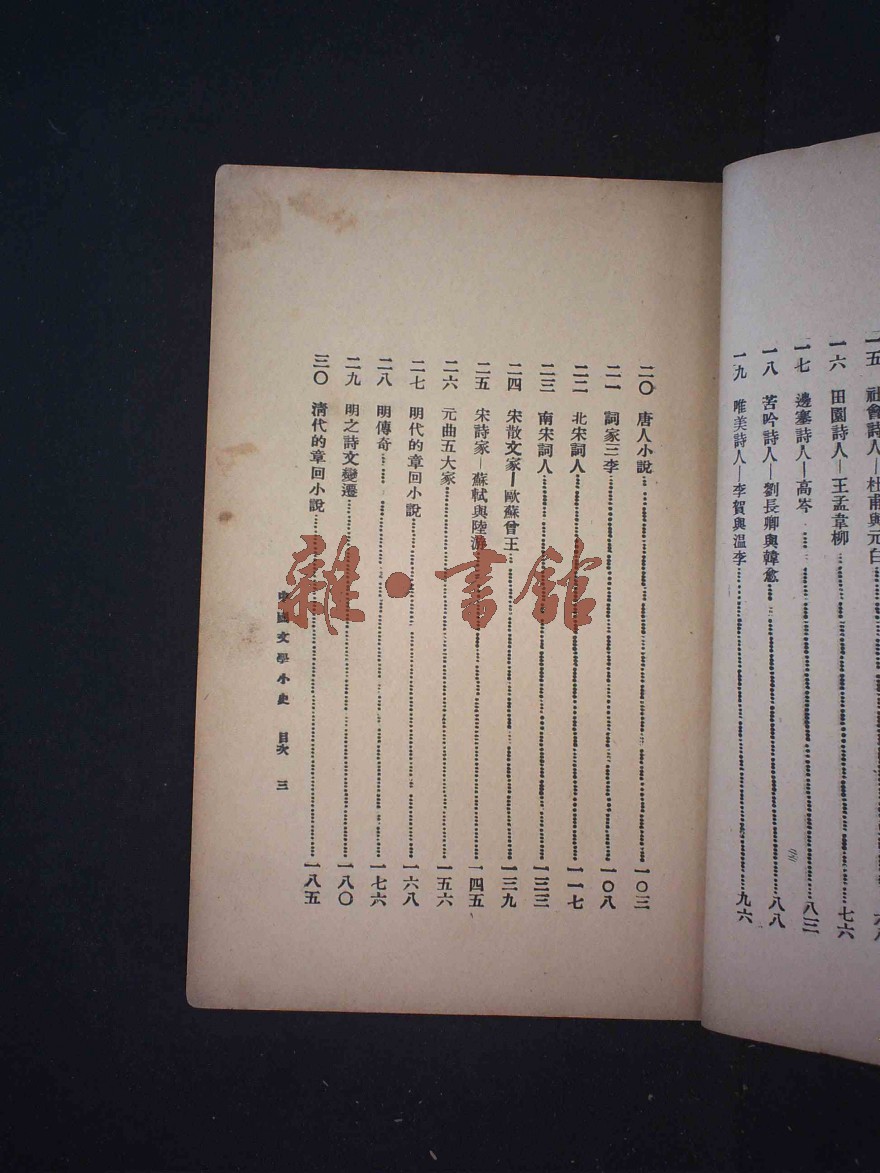 二五　社會詩人—杜甫與元白
一六　田園詩人—王孟韋柳……七六
一七　邊塞詩人—高岑……八三
一八　苦吟詩人—劉長卿與韓愈……八八
一九　唯美詩人—李賀與溫李……九六
二〇　唐人小說……一〇三
二一　詞家三李……一〇八
二二　北宋詞人……一一七
二三　南宋詞人……一三三
二四　宋散文家—歐蘇曾王……一三九
二五　宋詩家—蘇軾與陸游……一四五
二六　元曲五大家……一五六
二七　明代的章回小說……一六八
二八　明傳奇……一七六
二九　明之詩文變遷……一八〇
三〇　清代的章回小說……一八五
中國文學小史　目次　三
雜·書館